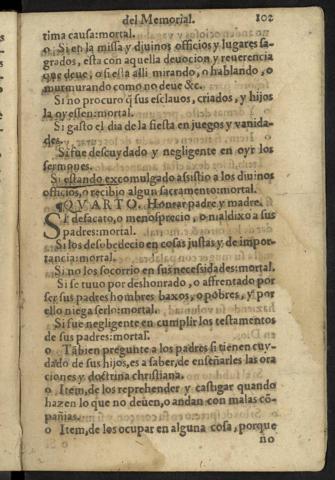 del Memorial. 102
tima causa: mortal.
o Si en la missa y diuinos officios y lugares sa-
grados, esta con aquella deuocion y reuerencia
que deue, o si esta alli mirando, o hablando, o
murmurando como no deue &c.
Si no procuro q̃ sus esclauos, criados, y hijos
la oyessen: mortal.
Si gasto el dia de la fiesta en juegos y vanida-
des.
Si fue descuydado y negligente en oyr los
sermones.
Si estando excomulgado assistio a los diuinos
officios, o recibio algun sacramento: mortal.
¶ QVARTO. Honrar padre y madre.
Si desacato, o menosprecio, o maldixo a sus
padres: mortal.
Si los desobedecio en cosas justas y de impor-
tancia: mortal.
Si no los socorrio en sus necessidades: mortal.
Si se tuuo por deshonrado, o affrentado por
ser sus padres hombres baxos, o pobres, y por
ello niega serlo: mortal.
Si fue negligente en cumplir los testamentos
de sus padres: mortal.
o Tãbien pregunte a los padres si tienen cuy-
dado de sus hijos, es a saber, de enseñarles las ora
ciones y doctrina christiana.
o Item, de los reprehender y castigar quando
hazen lo que no deuen, o andan con malas cõ-
pañias.
o Item, de los ocupar en alguna cosa, porque
no